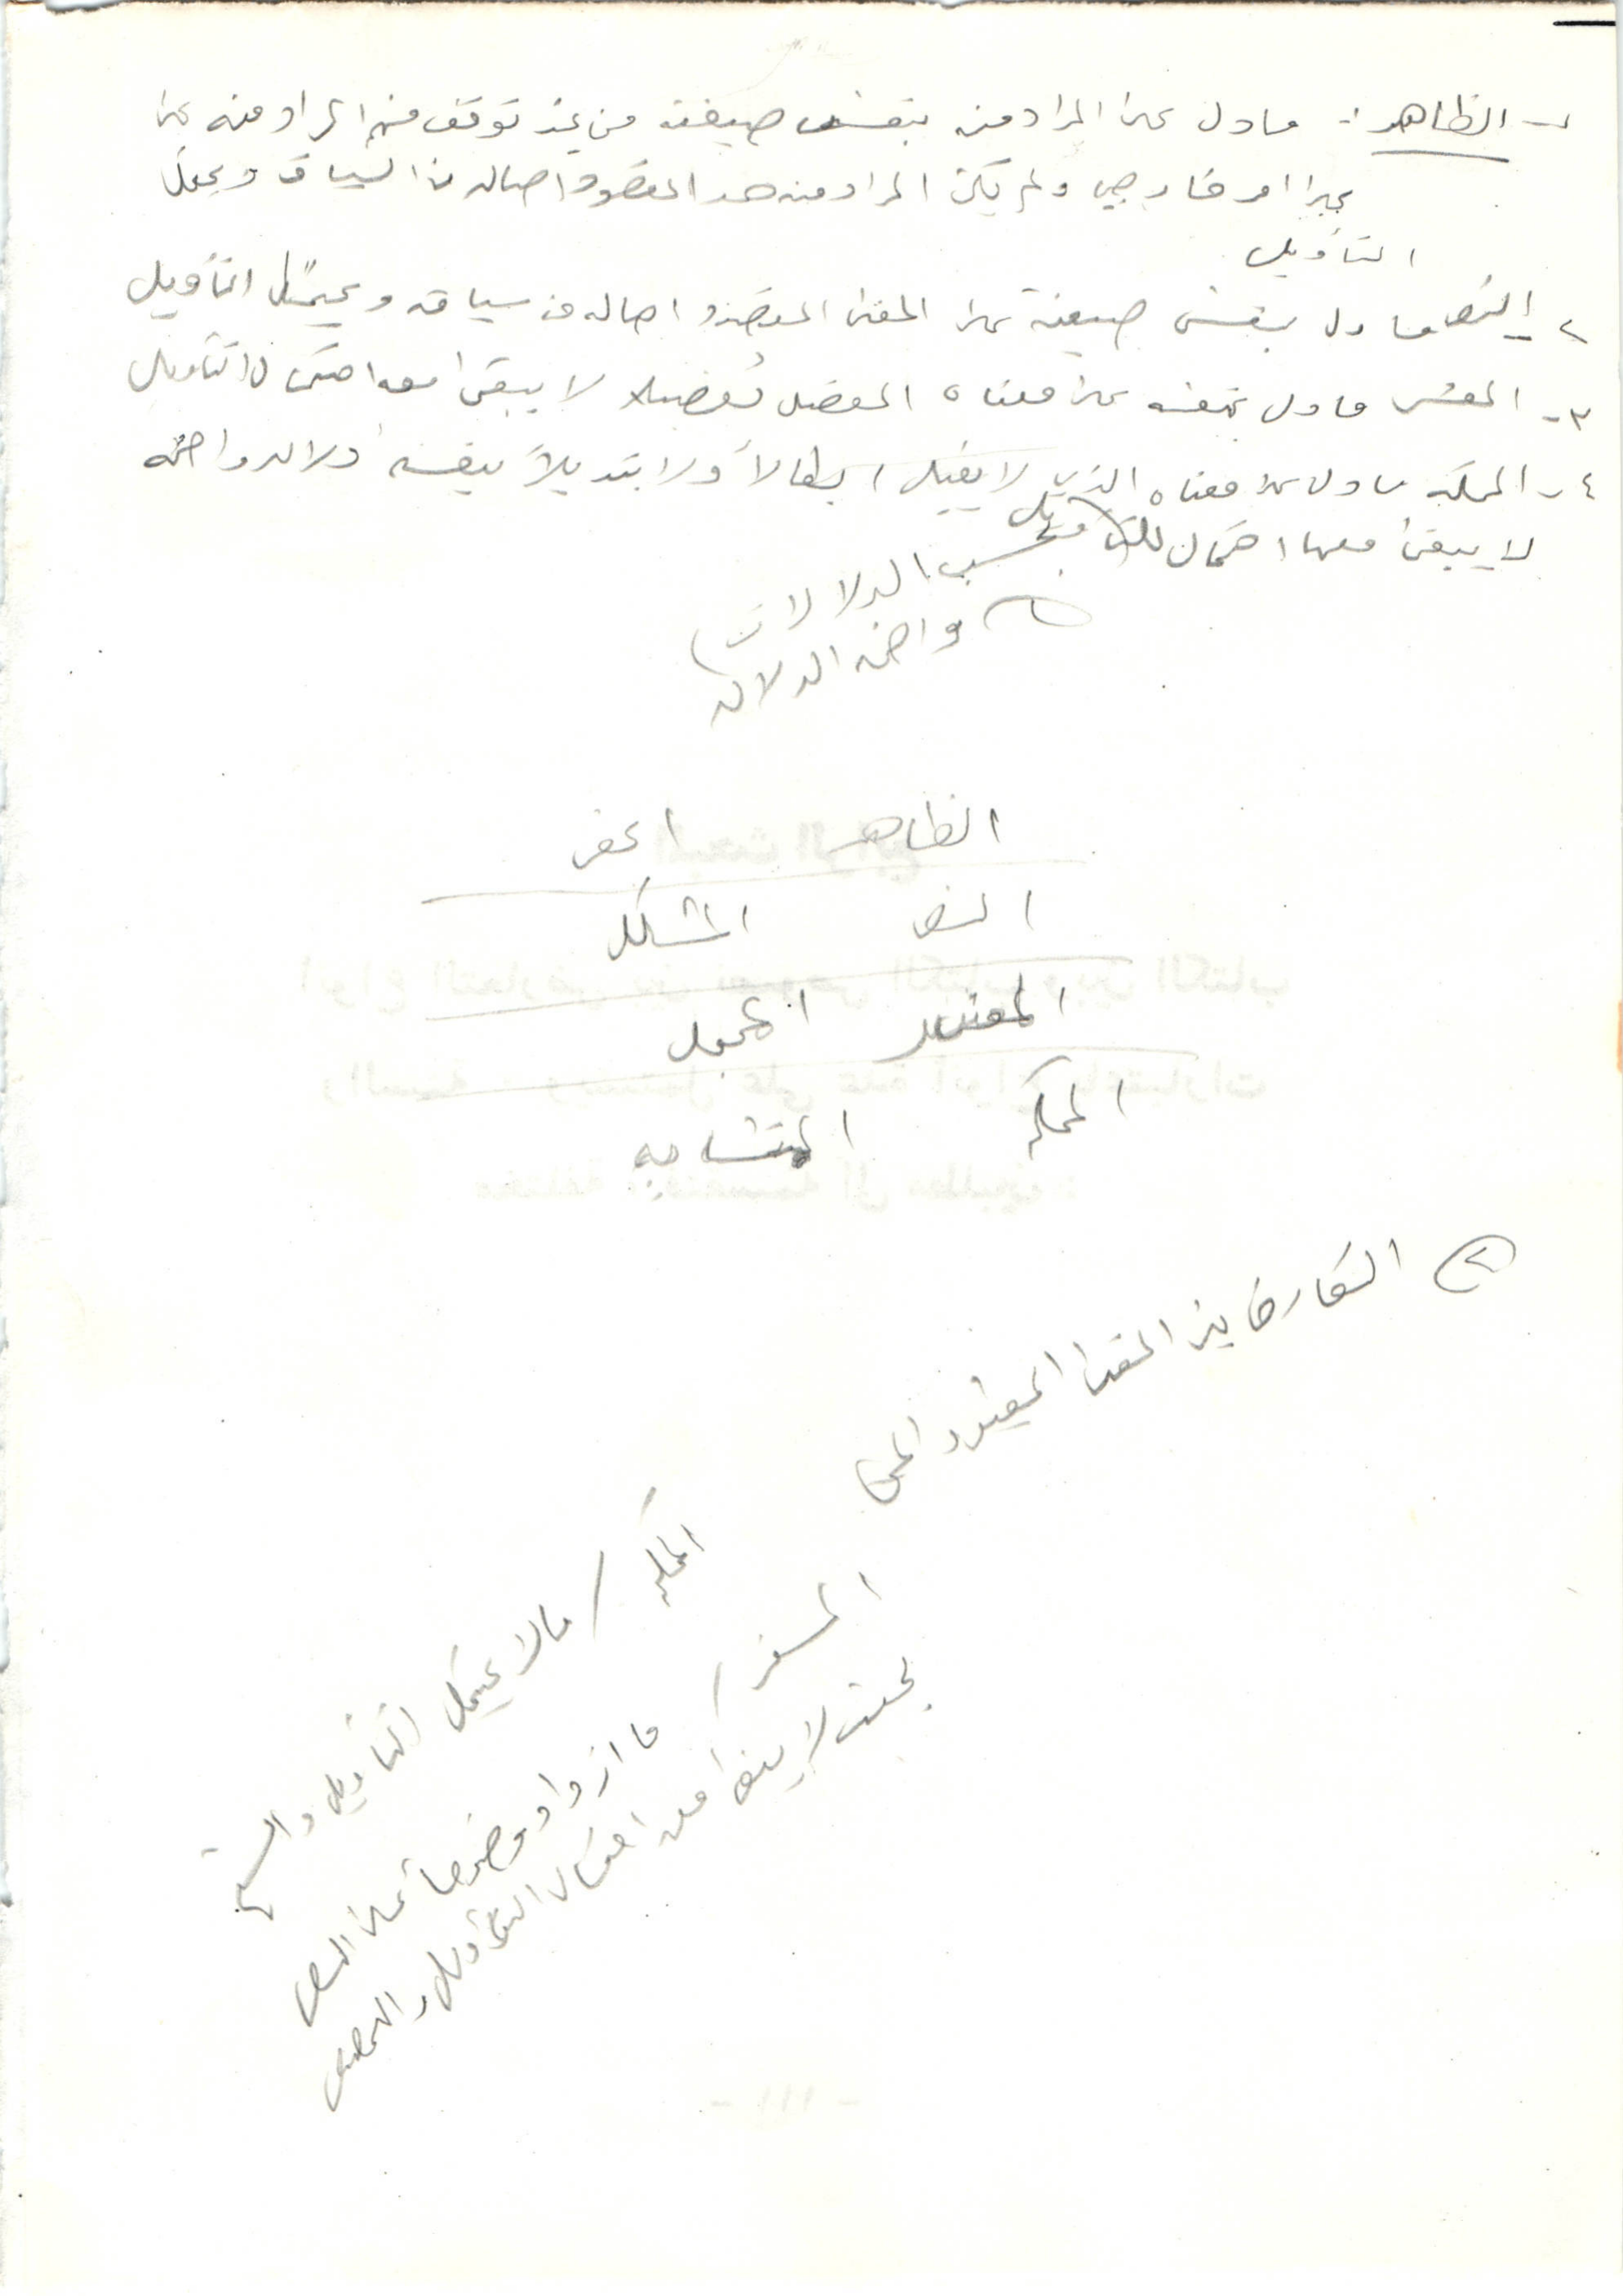 ١- الظاهر :- ما دل على المراد منه بنفس صيغته من غير توقف فهم المراد منه على
امر خارجي ولم يكن المراد منه هو المقصود اصاله من السياق ويحتمل
التأويل
٢- النص ما دل بنفس صيغته على المعنى المقصود اصاله من سياقه ويحتمل التأويل
٣- المفسر ما دل بنفسه على معناه المفصل تفصيلا لا يبقى معه احتمال التأويل
٤- المحكم ما دل على معناه الذي لا يقبل ابطالاً ولا تبديلاً بنفسه دلاله واضحه
لا يبقى معها احتمال للتأويل
بحسب الدلالات
واضحه الدلاله
الظاهر الخفي
النص المشكل
المفسر المجمل
المحكم المتشابه
٢ التعارض بين
المحكم / ما لا يحتمل التأويل والنسخ
المفسر / ما ازداد وضوحاً على النص
بحيث لا يبقى معه احتمال التأويل والتخصيص